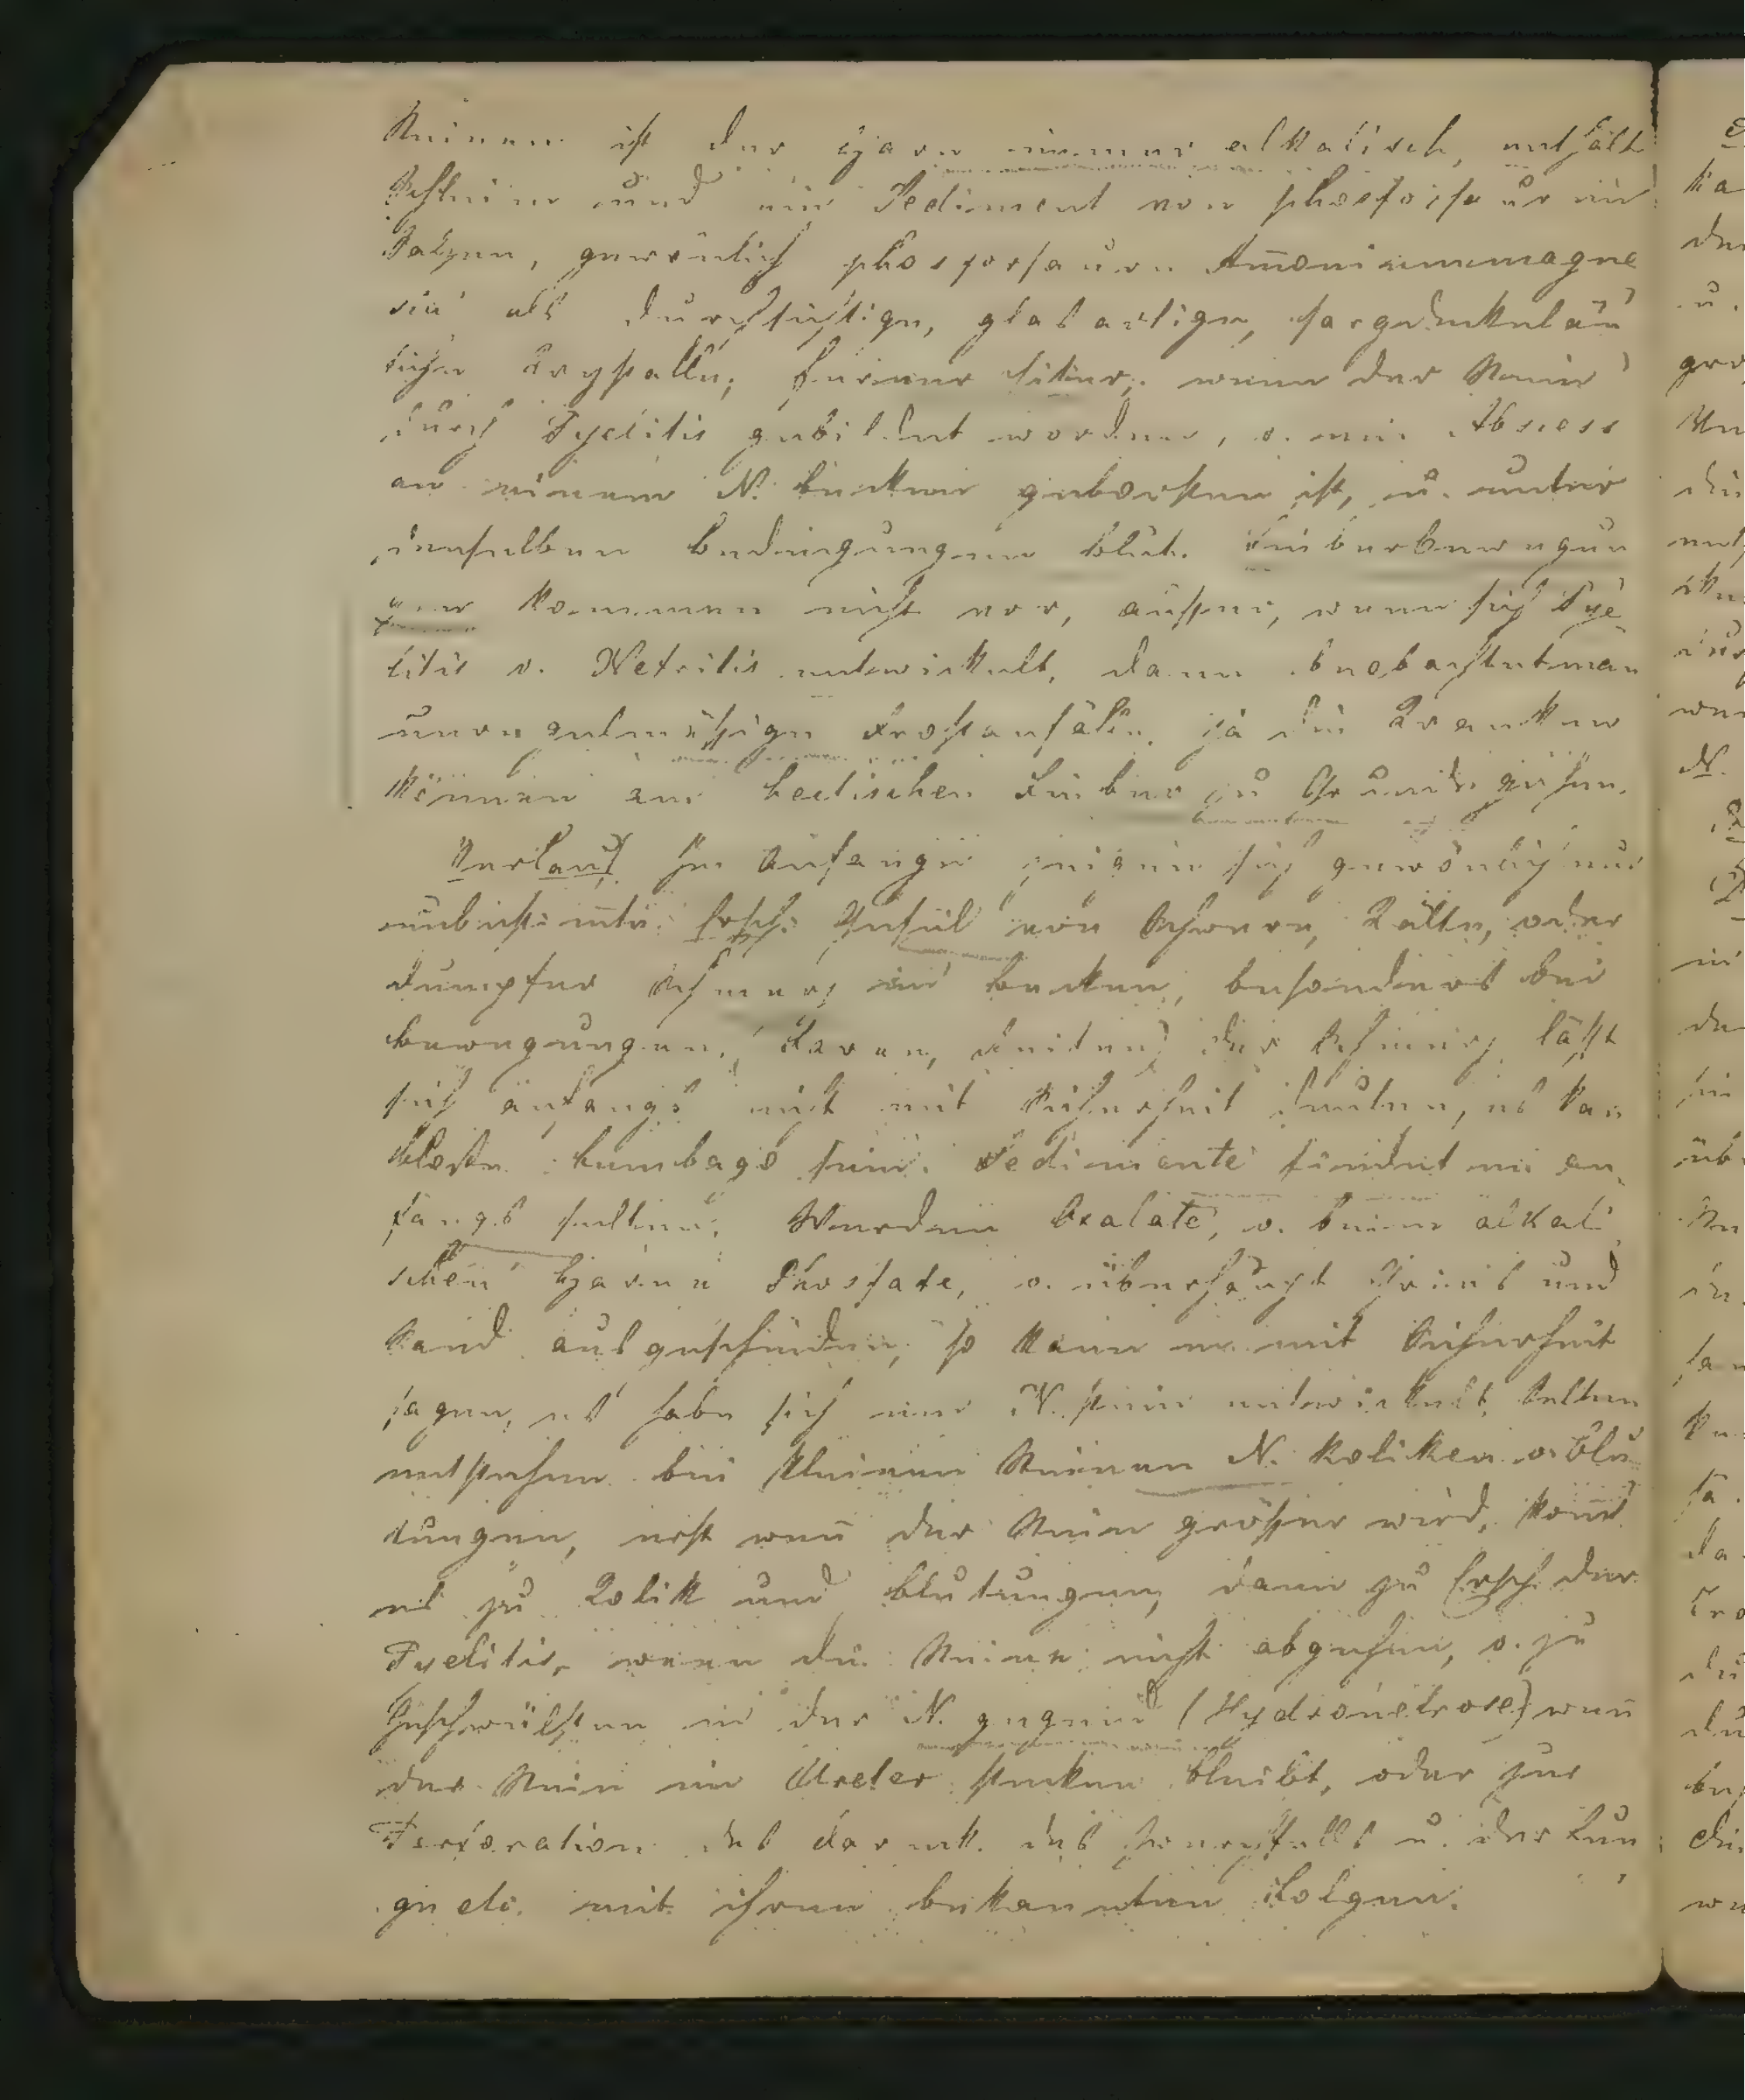 Steinen ist der Harn immer alkalisch, enthält
Schleim und ein Sediment von phosforsauren
Salzen, gewönlich phosforsauren Amoniummagne
sia als durchsichtige, glasartige, sargdeckelän
liche Krystalle; ferner Eiter, wenn der Stein
durch Pyelitis gebildet worden, o. ein Absces
an einem N. becken geborsten ist, u. unter
denselben bedingungen blut. Fieberbewegun
gen kommen nicht vor, auser, wenn sich Pye
litis o. Nefritis entwickelt, dann beobachtet man
unregelmäsige Frostanfälle, ja die Kranken
können am hectischen Fieber zu Grunde gehen.
Verlauf. Im Anfange zeigen sich gewönlich nur
unbestimte Ersch. Gefül von Schwere, Kälte, oder
dumpfer Schmerz im becken, besonders bei
bewegungen, Faren, Reiten; der Schmerz läst
sich anfangs nicht mit Sicherheit deuten, es kan
blose Lumbago sein. Sedimente findet me an
fangs selten. Werden Oxalate, o. beim alkali
schen Harne Fosfate, o. überhaupt Gries und
Sand ausgeschieden, so kann me mit Sicherheit
sagen, es habe sich ein N. stein entwickelt. Selten
entstehen bei kleinen Steinen N. koliken o. blu
tungen, erst wen der Stein gröser wird, komt
es zu Kolik und blutungen, dann zu Ersch. der
Pyelitis, wenn die Steine nicht abgehen, o. zu
Geschwülsten in der N. gegend (Hydronefrose) wen
der Stein im Ureter stecken bleibt, oder zur
Perforation des Darmk. des Zwerchfells u. der Lun
ge etc. mit ihren bekannten Folgen.